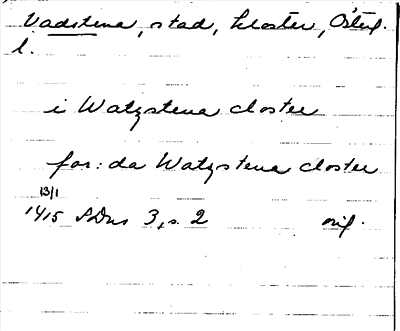 Vadstena, stad, kloster, Österg.
l.
i Watzstena closter
for:da Watzstena closter
13/1
1415 SDns 3, s. 2 orig.